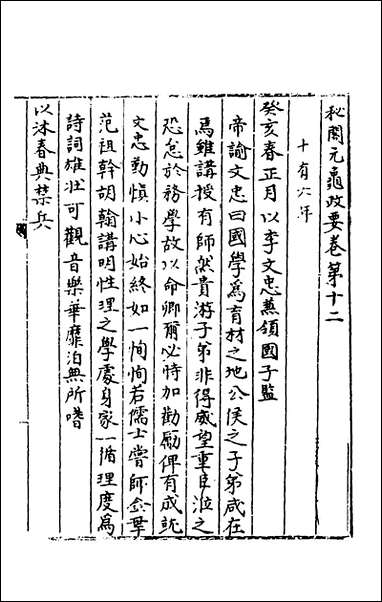 秘閣元龜政要卷第十二
十有六年
癸亥春正月以李文忠兼領國子監
帝諭文忠曰國學爲育材之地公侯之子弟咸在
焉雖講授有師然貴游子弟非得威望重臣涖之
恐怠於務學故以命卿爾必時加勸勵俾有成就
文忠勤慎小心始終如一恂恂若儒士嘗師金華
范祖幹胡翰講明性理之學處身家一循理度爲
詩詞雄壯可觀音樂華靡泊無所嗜
以沐春典禁兵